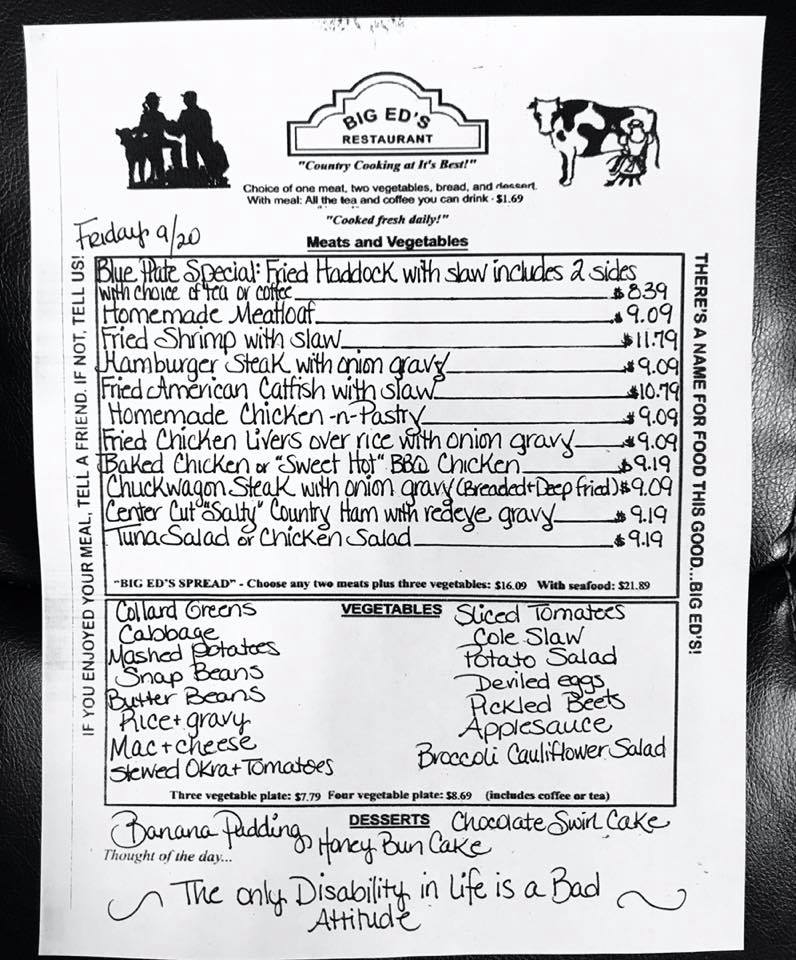 BIG ED'S
RESTAURANT
"Country Cooking at It's Best!"
Choice of one meat, two vegetables, bread, and dessert.
With meal: All the tea and coffee you can drink - $1.69
"Cooked fresh daily!"
Friday 9/20
Meats and Vegetables
Blue Plate Special: Fried Haddock with slaw includes 2 sides
with choice of tea or coffee $8.39
Homemade Meatloaf $9.09
Fried Shrimp with slaw $11.79
Hamburger Steak with onion gravy $9.09
Fried American Catfish with slaw $10.79
Homemade Chicken-n-Pastry $9.09
Fried Chicken Livers over rice with onion gravy $9.09
Baked Chicken or "Sweet Hot" BBQ Chicken $9.19
Chuckwagon Steak with onion gravy (Breaded + Deep fried) $9.09
Center Cut "Salty" Country Ham with redeye gravy $9.19
Tuna Salad or Chicken Salad $9.19
"BIG ED'S SPREAD" - Choose any two meats plus three vegetables: $16.09 With seafood: $21.89
VEGETABLES
Collard Greens
Cabbage
Mashed Potatoes
Snap Beans
Butter Beans
Rice + gravy
Mac + cheese
Stewed Okra + Tomatoes
Sliced Tomatoes
Cole Slaw
Potato Salad
Deviled eggs
Pickled Beets
Applesauce
Broccoli Cauliflower Salad
Three vegetable plate: $7.79 Four vegetable plate: $8.69 (includes coffee or tea)
DESSERTS
Banana Pudding
Honey Bun Cake
Chocolate Swirl Cake
Thought of the day...
The only Disability in Life is a Bad
Attitude
IF YOU ENJOYED YOUR MEAL, TELL A FRIEND. IF NOT, TELL US!
THERE'S A NAME FOR FOOD THIS GOOD...BIG ED'S!